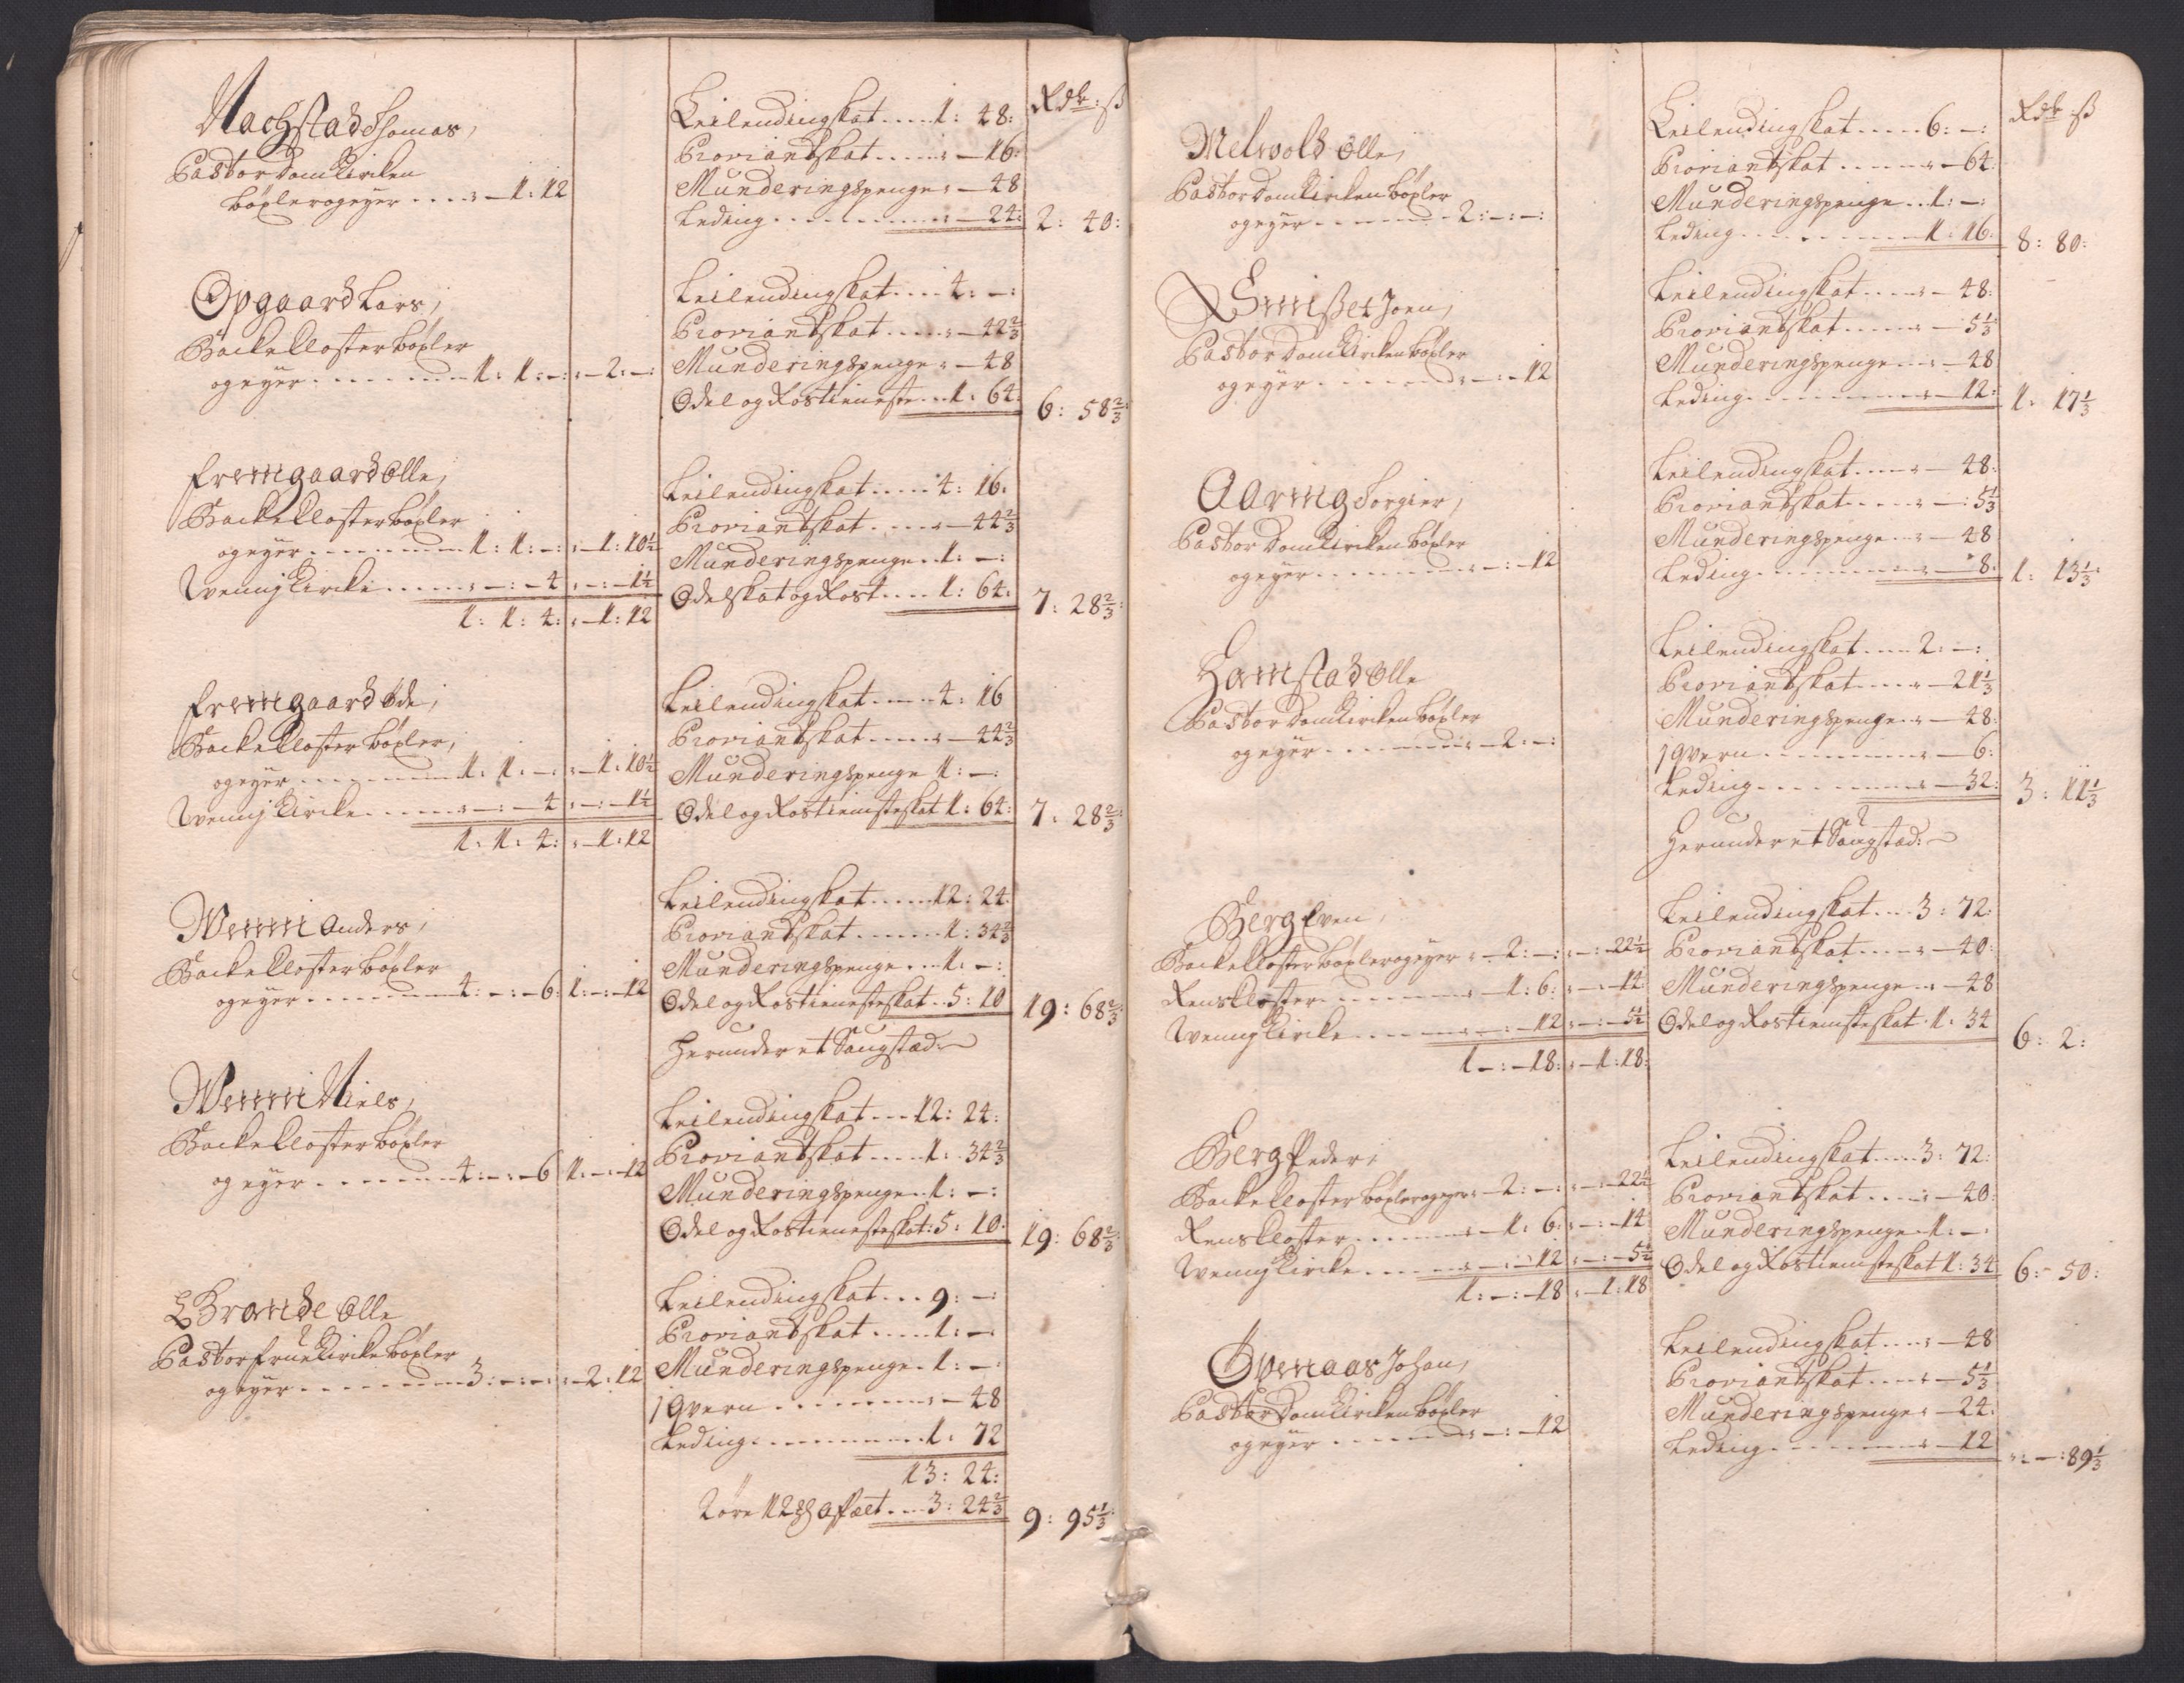 Rdr: ß
Nachstad Thomas,
Pastor Domkirken
bøxler og eyer .... : – 1: 12
Leilendingskat .... 1: 48:
Proviantskat ..... : – 16:
Munderingspenge : – 48
Leding ......... : – 24: 2: 40:
Opgaard Lars,
Backe Closter bøxler
og eyer ........ 1: 1: –: : – 2: –:
Leilendingskat .... 4: –:
Proviantskat ..... : – 42 2/3
Munderingspenge : – 48
Odel og Rostieneste ... 1: 64: 6: 58 2/3:
Fremgaard Olle,
Backe Closter bøxler
og eyer ........ 1: 1: –: : – 1: 10 1/2
Wennj Kircke ...... : –: – 4 : –: – 1 1/2
1: 1: 4: : – 1: 12
Leilendingskat ..... 4: 16:
Proviantskat ..... : – 44 2/3
Munderingspenge .. 1: –:
Odelskat og Rost .... 1: 64: 7: 28 2/3:
Fremgaard Ode,
Backe Closter bøxler,
og eyer ........ 1: 1: –: : – 1: 10 1/2
Wennj Kircke ...... : –: – 4 : –: – 1 1/2
1: 1: 4: : – 1: 12
Leilendingskat ..... 4: 16
Proviantskat ..... : – 44 2/3
Munderingspenge 1: –:
Odel og Rostienisteskat 1: 64: 7: 28 2/3:
Wenni Anders,
Backe Closter bøxler
og eyer ........ 4: –: – 6: 1: –: – 12
Leilendingskat ..... 12: 24:
Proviantskat ...... 1: 34 2/3
Munderingspenge ... 1: –:
Odel og Rostienesteskat .. 5: 10 19: 68 2/3:
Herunder et Saugstad
Wenni Niels,
Backe Closter bøxler
og eyer ........ 4: –: – 6 1: –: – 12
Leilendingskat ... 12: 24:
Proviantskat ..... 1: 34 2/3
Munderingspenge .. 1: –:
Odel og Rostienesteskat: 5: 10: 19: 68 2/3:
Brande Olle
Pastor Frue Kircke bøxler
og eyer ........ 3: –: –: : – 2: 12
Leilendingskat ... 9: –:
Proviantskat ..... 1: –:
Munderingspenge . 1: –:
1 Qvern ........ : – 48
Leding .......... 1: 72
13: 24:
affælt ... 3: 24 2/3 9: 95 1/3:
Rdr: ß
Melwold Olle,
Pastor Domkircken bøxler
og eyer ........ 2: –: –:
Leilendingskat ..... 6: –:
Proviantskat ...... : – 64:
Munderingspenge .. 1: –:
Leding ......... 1: 16: 8: 80:
Joen,
Pastor Domkircken bøxler
og eyer ........ : –: – 12
Leilendingskat .... : – 48:
Proviantskat ..... : – 5 1/3
Munderingspenge .. : – 48
Leding ......... : – 12: 1: 17 1/3
Aaring Torgier,
Pastor Domkircken bøxler
og eyer ........ : –: – 12
Leilendingskat .... : – 48:
Proviantskat ..... : – : 5 1/3
Munderingspenge .. : – 48
Leding ......... : – 8: 1: 13 1/3:
Hamstad Olle
Pastor Domkircken bøxler
og eyer ........ : – 2: –:
Leilendingskat .... 2: –:
Proviantskat .... : – 21 1/3
Munderingspenge .. : – 48:
1 Qvern ......... : – 6:
Leding ......... : – 32: 3: 11 1/3
Herunder et Saugstad:
Berg Even,
Backe Closter bøxler og eyer : – 2: –: : –: – 22 1/2
Rens Closter ........ : – 1: 6: : –: – 14
Wennj Kircke ....... : –: – 12 : –: – 5 1/2
1 –: – 18: : – 1: 18:
Leilendingskat .... 3: 72:
Proviantskat .... : – 40:
Munderingspenge .. : – 48
Odel og Rostienisteskat . 1: 34 6: 2:
Berg Peder,
Backe Closter bøxler og eyer : – 2: –: : –: – 22 1/2
Rens Closter ........ : – 1: 6: : –: – 14:
Wennj Kircke ....... : –: – 12 : –: – 5 1/2
1: –: – 18 : – 1: 18
Leilendingskat ..... 3: 72:
Proviantskat .... : – 40:
Munderingspenge .. 1: –:
Odel og Rostienisteskat 1: 34 6: – 50:
Johan,
Pastor Domkircken bøxler
og eyer ........ : –: – 12
Leilendingskat .... : – 48
Proviantskat .... : – 5 1/3
Munderingspenge : – 24:
Leding ......... : – 12 : – : 89 1/3